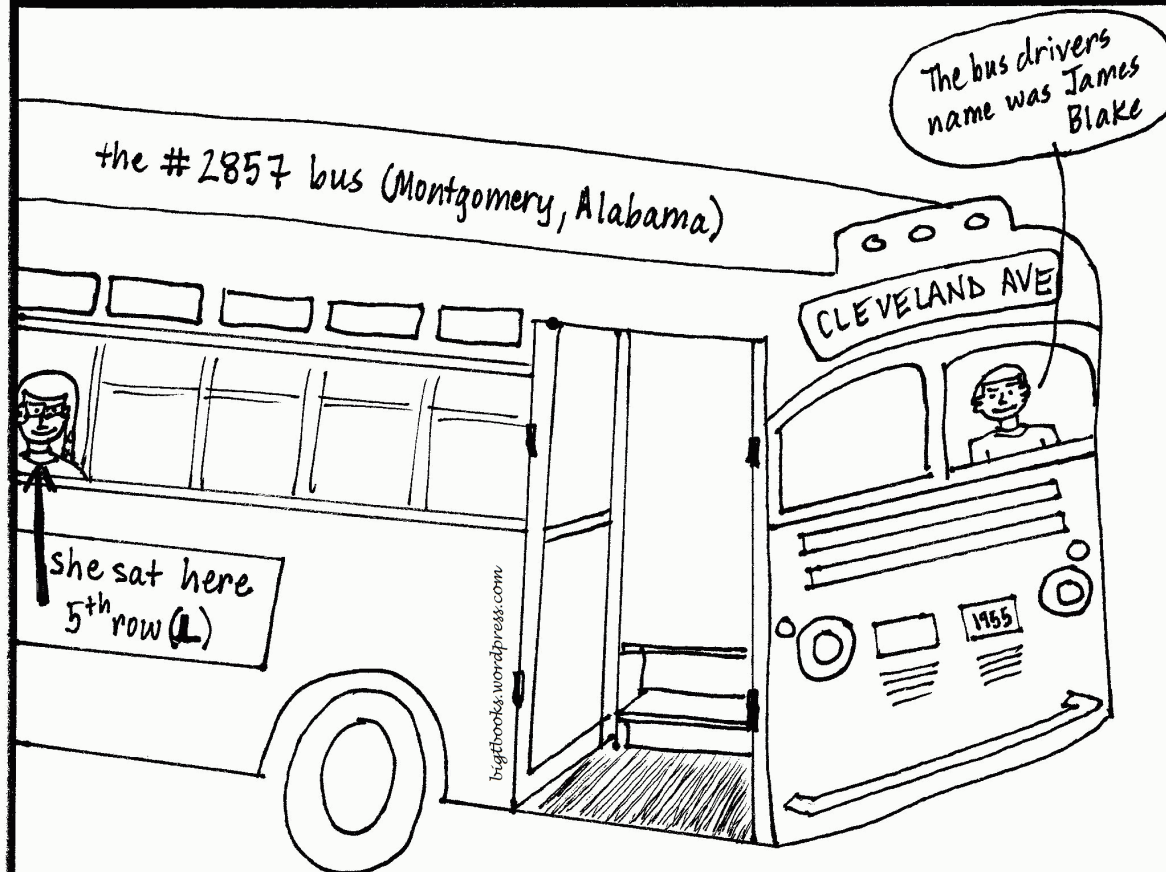 The bus drivers
name was James
Blake
the # 2857 bus (Montgomery, Alabama)
CLEVELAND AVE
she sat here
5th row (L)
1955
bigtbooks.wordpress.com